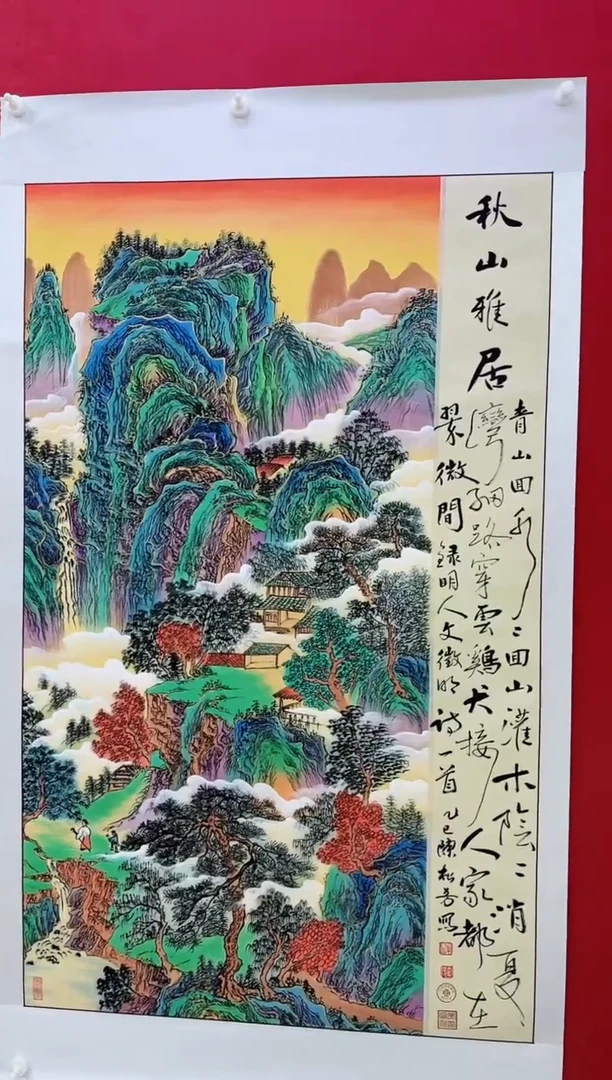 秋山雅居
青山回水〻回山灌木陰〻消夏
灣細路穿雲鷄犬接人家都在
翠微間錄明人文徵明詩一首乙巳陳松